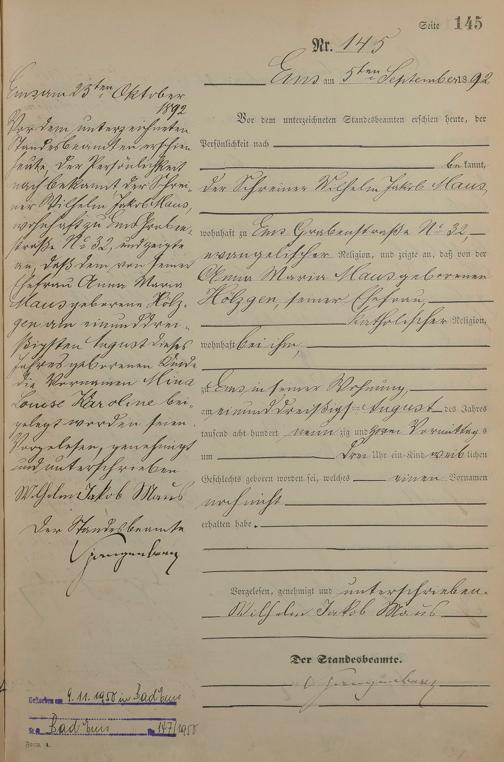 Seite 145
Nr. 145
Ems am 5ten September 1892
Vor dem unterzeichneten Standesbeamten erschien heute, der
Persönlichkeit nach
bekannt,
der Schreiner Wilhelm Jakob Maus,
wohnhaft zu Ems Grabenstraße No 32,
evangelischer Religion, und zeigte an, daß von der
Anna Maria Maus geborenen
Hölzgen, seiner Ehefrau,
katholischer Religion,
wohnhaft bei ihm,
zu Ems in seiner Wohnung,
am einunddreißigsten August des Jahres
tausend acht hundert neunzig und zwei Vormittags
um drei Uhr ein Kind weiblichen
Geschlechts geboren worden sei, welches einen Vornamen
noch nicht
erhalten habe.
Vorgelesen, genehmigt und unterschrieben.
Wilhelm Jakob Maus
Der Standesbeamte.
Ems am 25ten Oktober
1892
Vor dem unterzeichneten
Standesbeamten erschien
heute, der Persönlichkeit
nach bekannt, der Schrei-
ner Wilhelm Jakob Maus,
wohnhaft zu Ems Graben-
straße No 32, und zeigte
an, daß dem, von seiner
Ehefrau Anna Maria
Maus geborene Hölz-
gen am einunddrei-
ßigsten August dieses
Jahres geborenen Kinde
die Vornamen Mina
Louise Karoline bei-
gelegt worden seien.
Vorgelesen, genehmigt
und unterschrieben
Wilhelm Jakob Maus
Der Standesbeamte
Gestorben am 9.11.1958 in Bad Ems
St.A. Bad Ems Nr. 147/1958
Form. A.